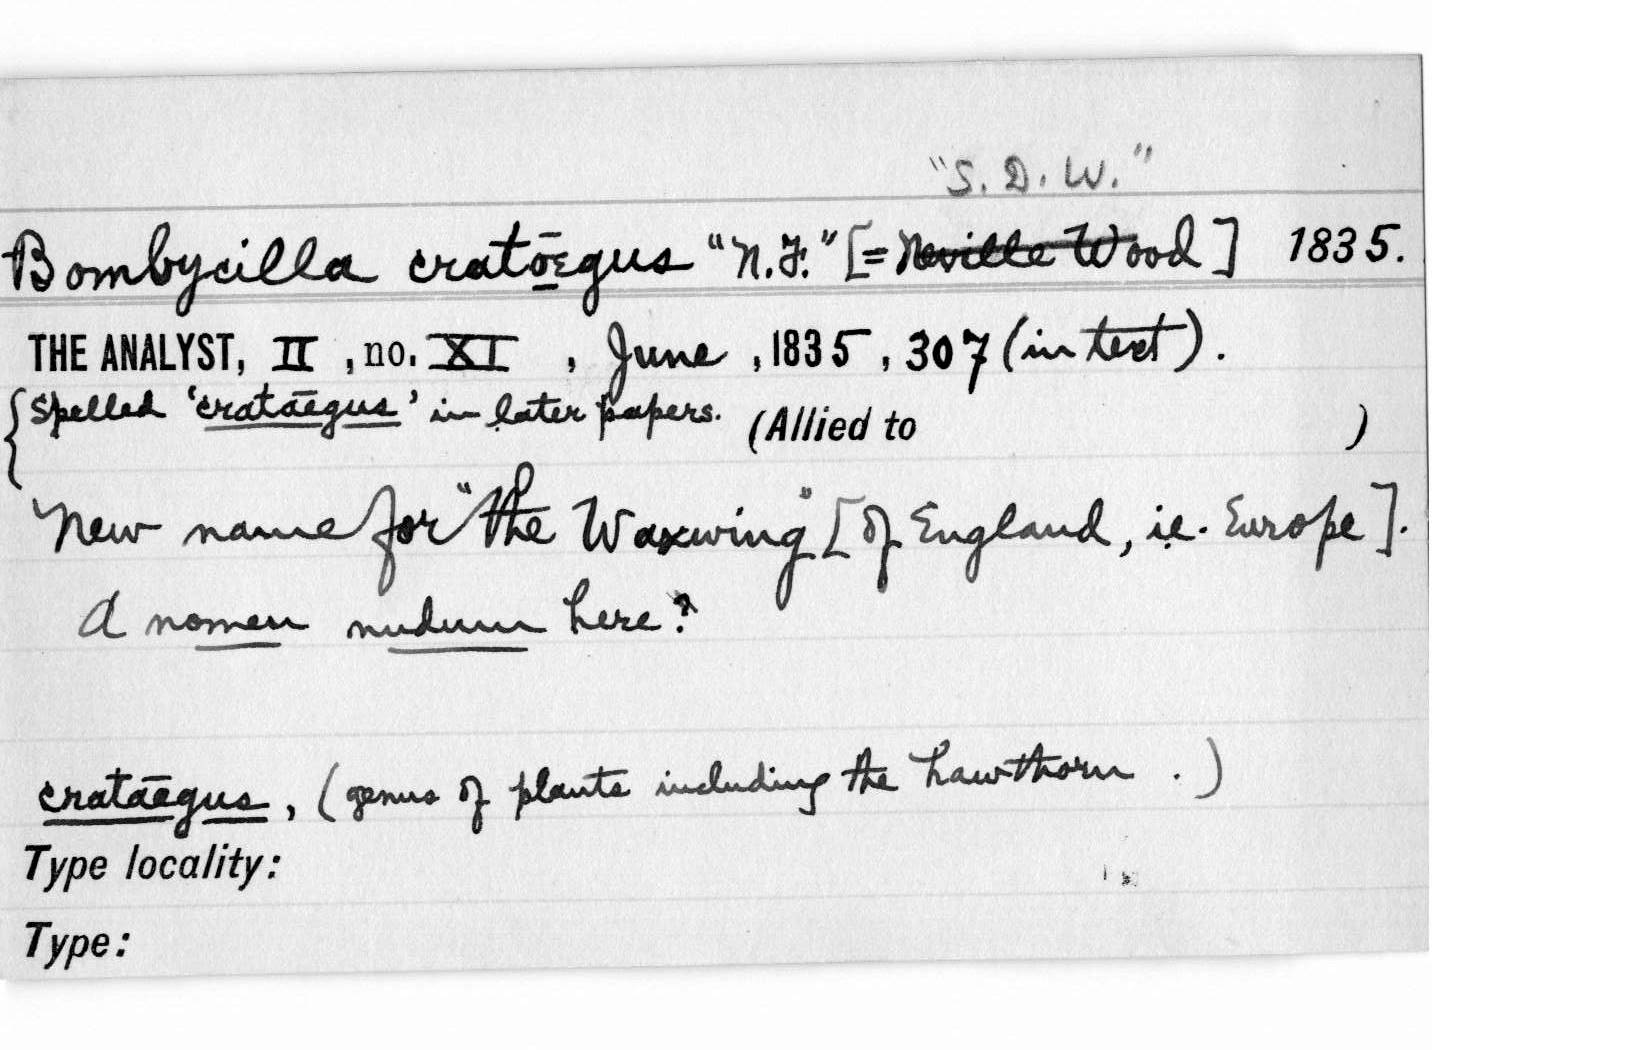 "S. D. W."
Bombycilla cratōegus "N.F." [= Neville Wood] 1835.
THE ANALYST, II, no. XI, June, 1835, 307 (in text).
{Spelled 'cratāegus' in later papers. (Allied to )
New name for "the Waxwing" [of England, i.e. Europe].
A nomen nudum here?
cratāegus, (genus of plants including the hawthorn.)
Type locality:
Type: